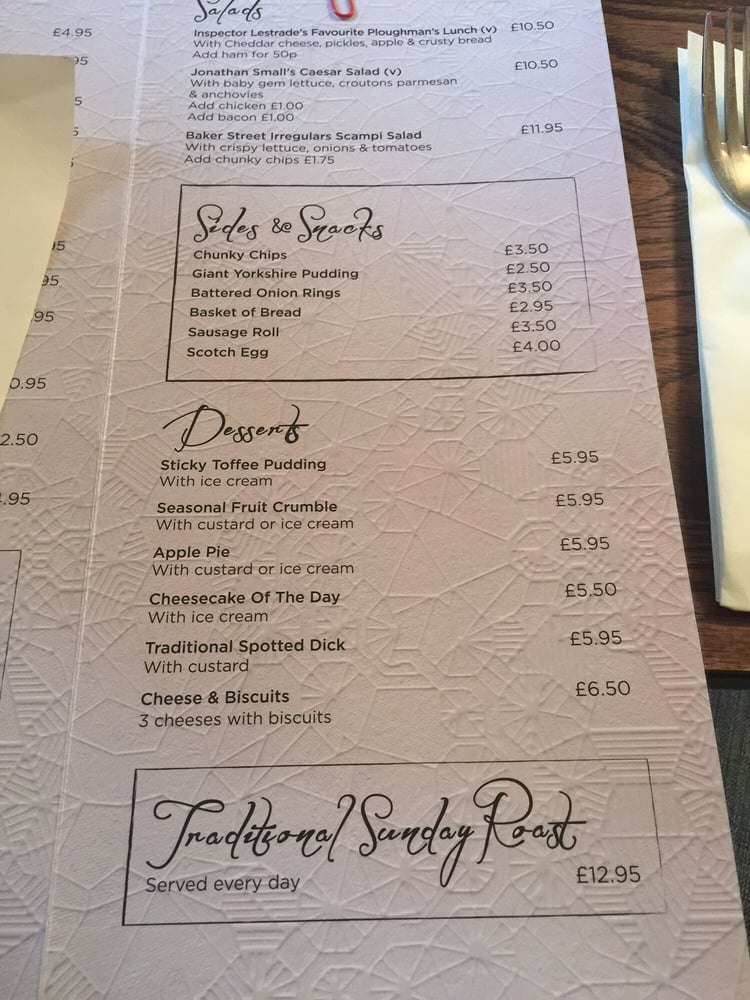 £4.95
95
5
5
5
95
95
0.95
2.50
.95
Salads
Inspector Lestrade's Favourite Ploughman's Lunch (v) £10.50
With Cheddar cheese, pickles, apple & crusty bread
Add ham for 50p
Jonathan Small's Caesar Salad (v) £10.50
With baby gem lettuce, croutons parmesan
& anchovies
Add chicken £1.00
Add bacon £1.00
Baker Street Irregulars Scampi Salad £11.95
With crispy lettuce, onions & tomatoes
Add chunky chips £1.75
Sides & Snacks
Chunky Chips £3.50
Giant Yorkshire Pudding £2.50
Battered Onion Rings £3.50
Basket of Bread £2.95
Sausage Roll £3.50
Scotch Egg £4.00
Desserts
Sticky Toffee Pudding £5.95
With ice cream
Seasonal Fruit Crumble £5.95
With custard or ice cream
Apple Pie £5.95
With custard or ice cream
Cheesecake Of The Day £5.50
With ice cream
Traditional Spotted Dick £5.95
With custard
Cheese & Biscuits £6.50
3 cheeses with biscuits
Traditional Sunday Roast
Served every day £12.95